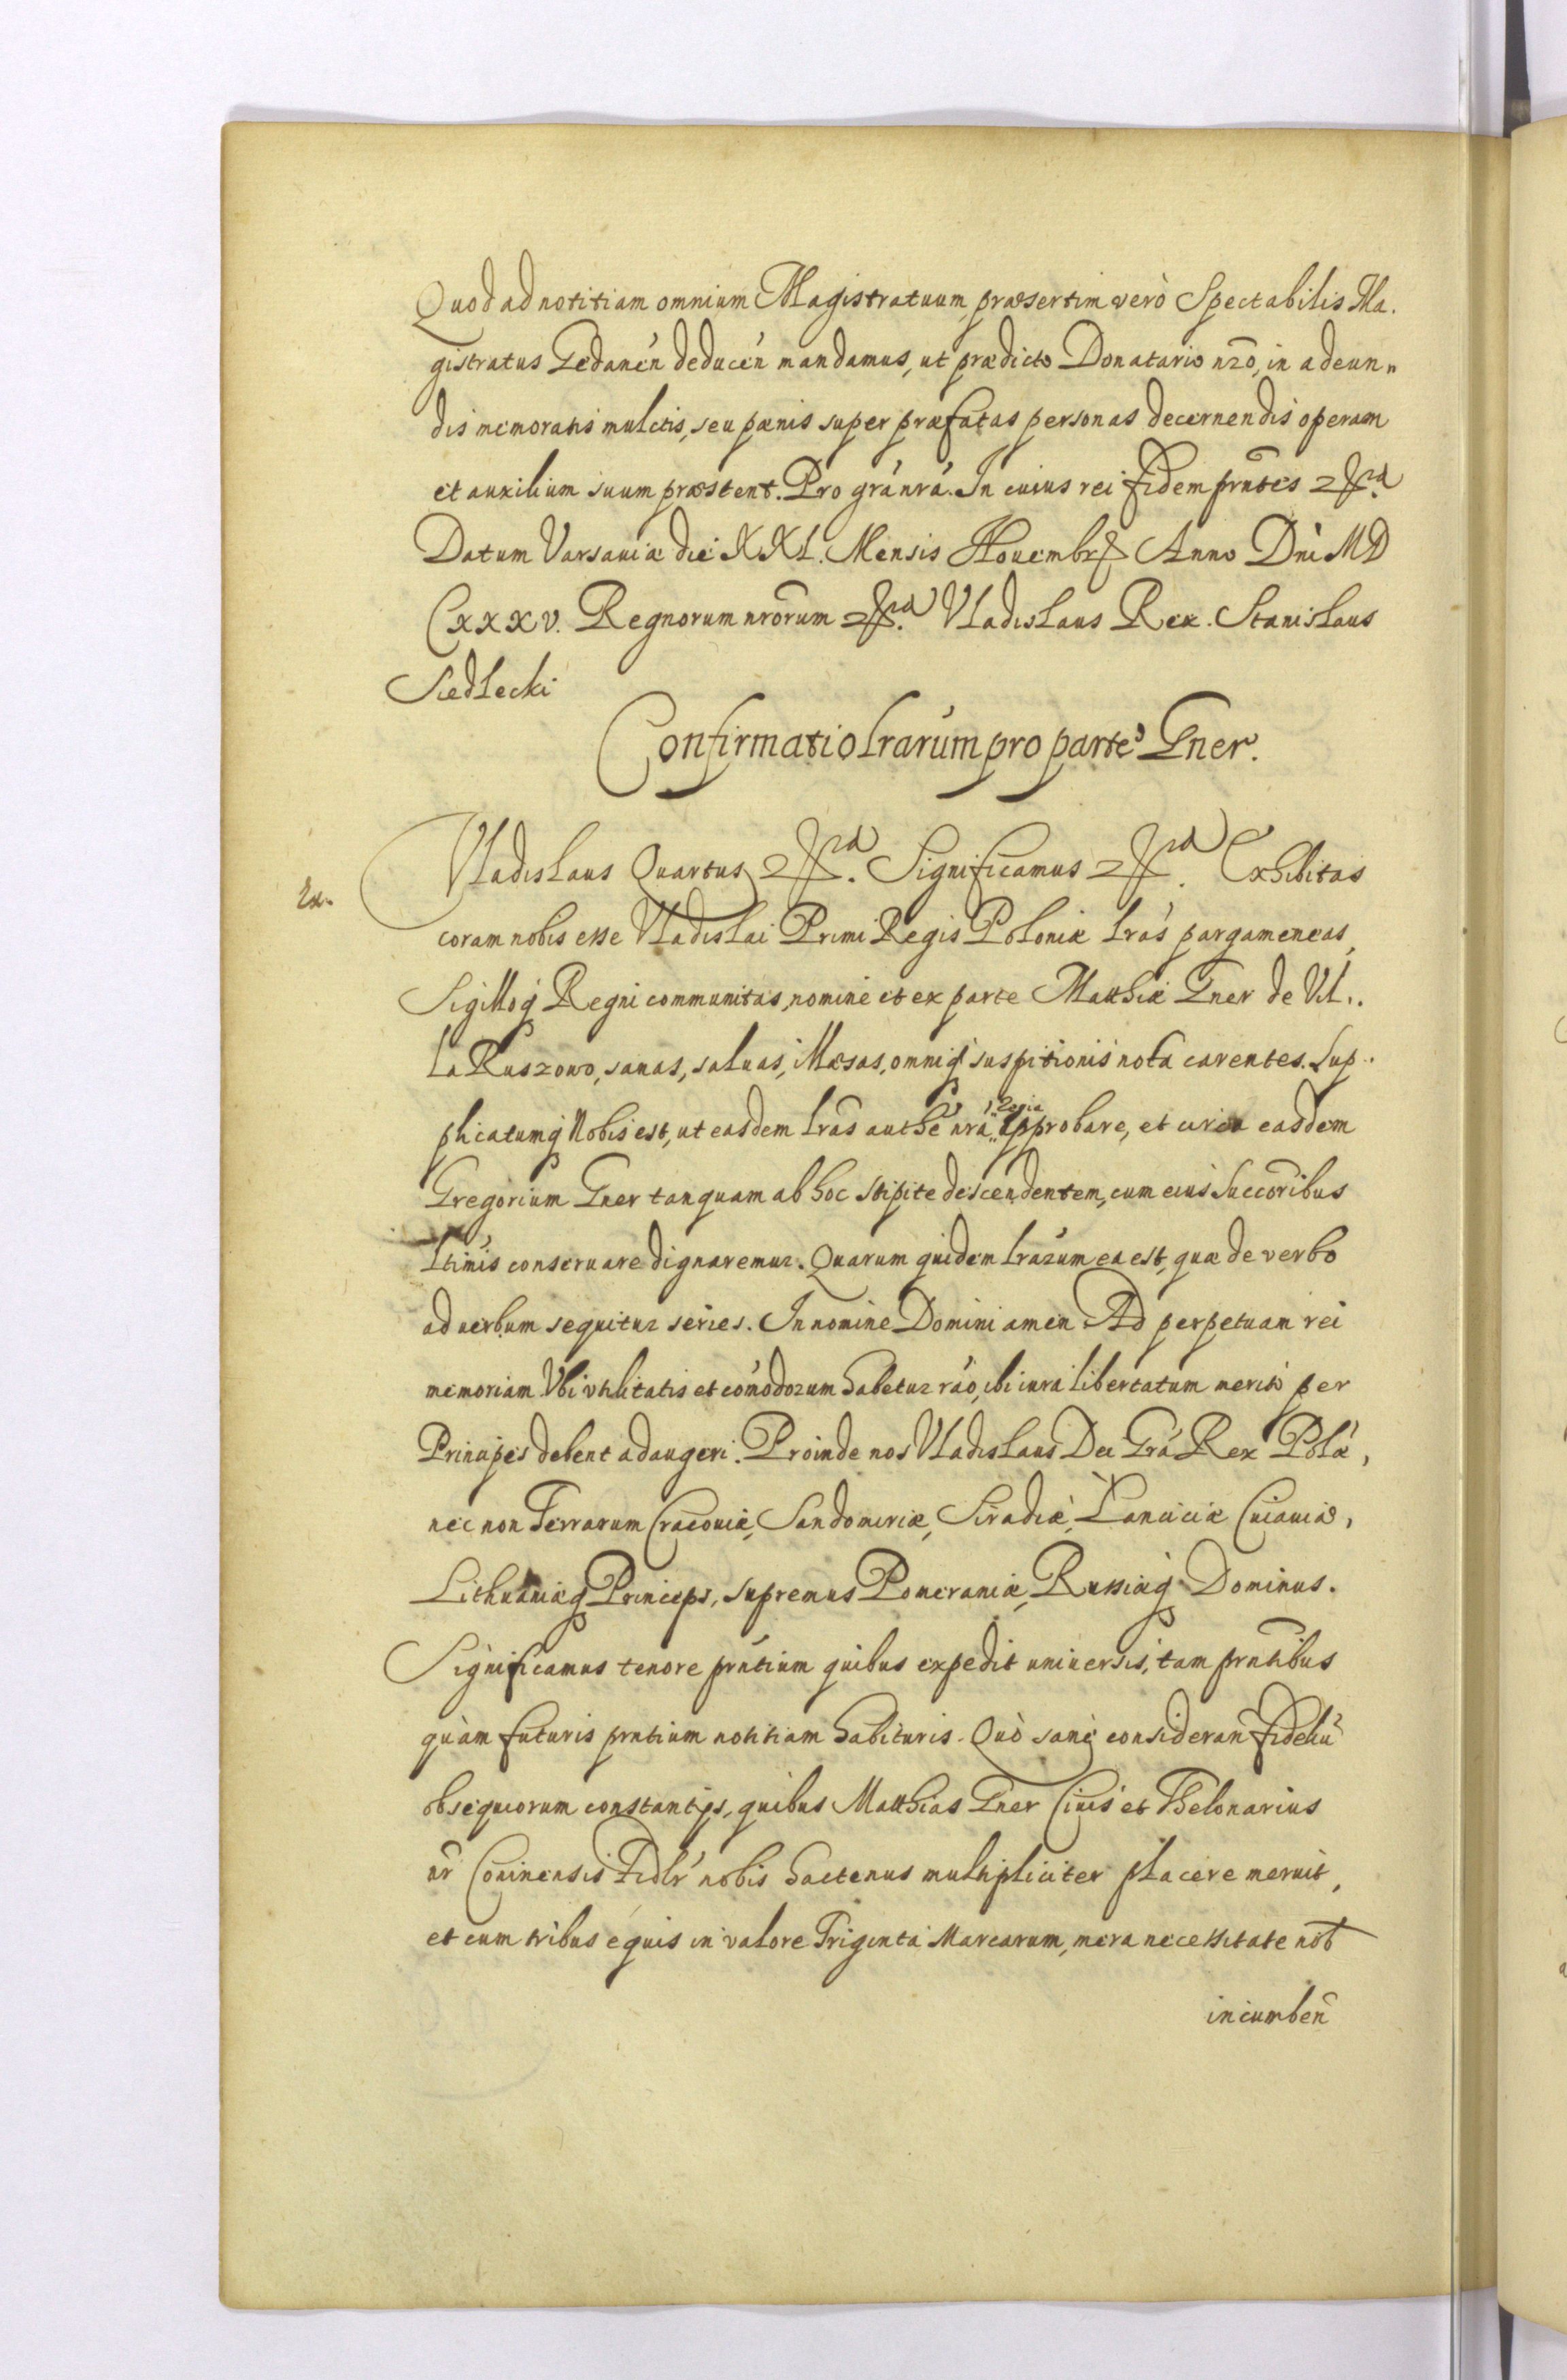 Quod ad notitiam omnium Magistratuum, præsertim verò Spectabilis Ma.
gistratus Gedanen̄ deducen̄ mandamus, ut prædicto Donatario nr̄o, in adeun„
dis memoratis mulctis, seu pœnis super præfatas personas decernendis operam
et auxilium suum præstent. Pro grā nrā. In cuius rei fidem prn̄tes
Datum Varsaviæ die XXI. Mensis Nouembr Anno Dnī MD
Cxxxv. Regnorum nrorum Vladislaus Rex. Stanislaus
Siedlecki
Confirmatio lrārum pro parte Gner.
Ex.
Vladislaus Quartus Significamus Exhibitas
coram nobis esse Vladislai Primi Regis Poloniæ lrās pargameneas,
Sigilloq Regni communitas, nomine et ex parte Matthiæ Gner de Vil..
la Ruszowo, sanas, saluas, illæsas, omniq suspitionis nota carentes. Sup..
plicatumq Nobis est, ut easdem lrās authē nrā Regia approbare, et circa easdem
Gregorium Gner tanquam ab hoc stipite descendentem, cum eius succoribus
ltimis conseruare dignaremur. Quarum quidem lrārum ea est, quæ de verbo
ad uerbum sequitur series. In nomine Domini amen Ad perpetuam rei
memoriam Vbi vtilitatis et com̄odorum habetur rāo, ibi iura libertatum meritò per
Principes debent adaugeri. Proinde nos Vladislaus Dei Grā Rex Polæ,
nec non Terrarum Cracouiæ, Sandomiriæ, Siradiæ, Lanciciæ Cuiauiæ,
Lithuaniæq Princeps, supremus Pomeraniæ, Russiæq Dominus.
Significamus tenore prn̄tium quibus expedit uniuersis, tam prn̄tibus
quàm futuris prn̄tium notitiam habituris. Quò sanè consideran̄ fideliu
obsequiorum constantijs, quibus Matthias Gner Ciuis et Thelonarius
nr̄ Coninensis Fidlr nobis hactenus multipliciter placere meruit,
et cum tribus equis in valore Triginta Marcarum, mera necessitate nob
incumben̄